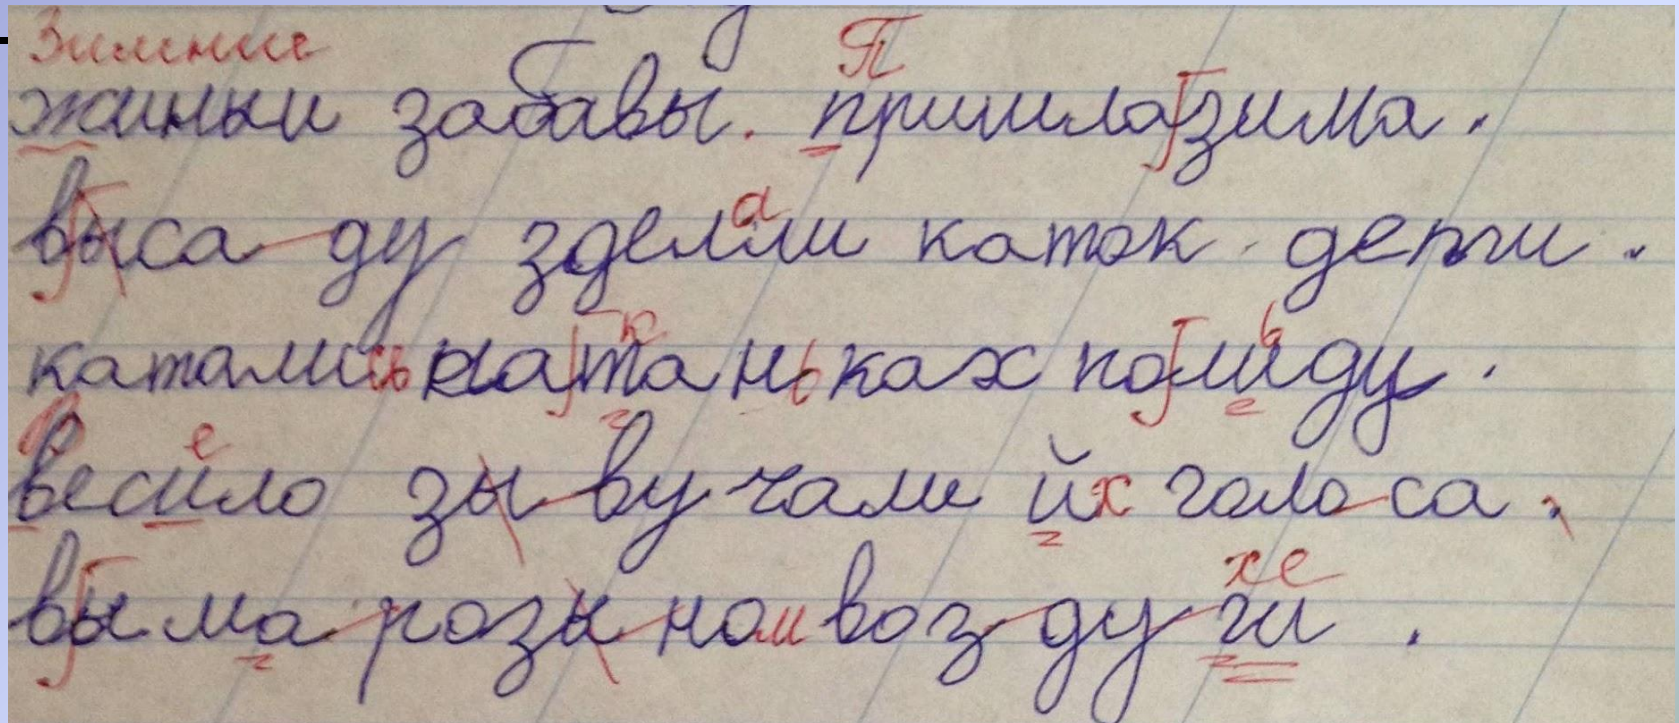 Зимние
П
жиныи забавы. пришла зима.
а
выса ду зделли каток дети.
к ь
катались на та ньках по лиду.
е
весило зы ву чали йх голо са.
хе
вы ма розы ном воз ду ги.